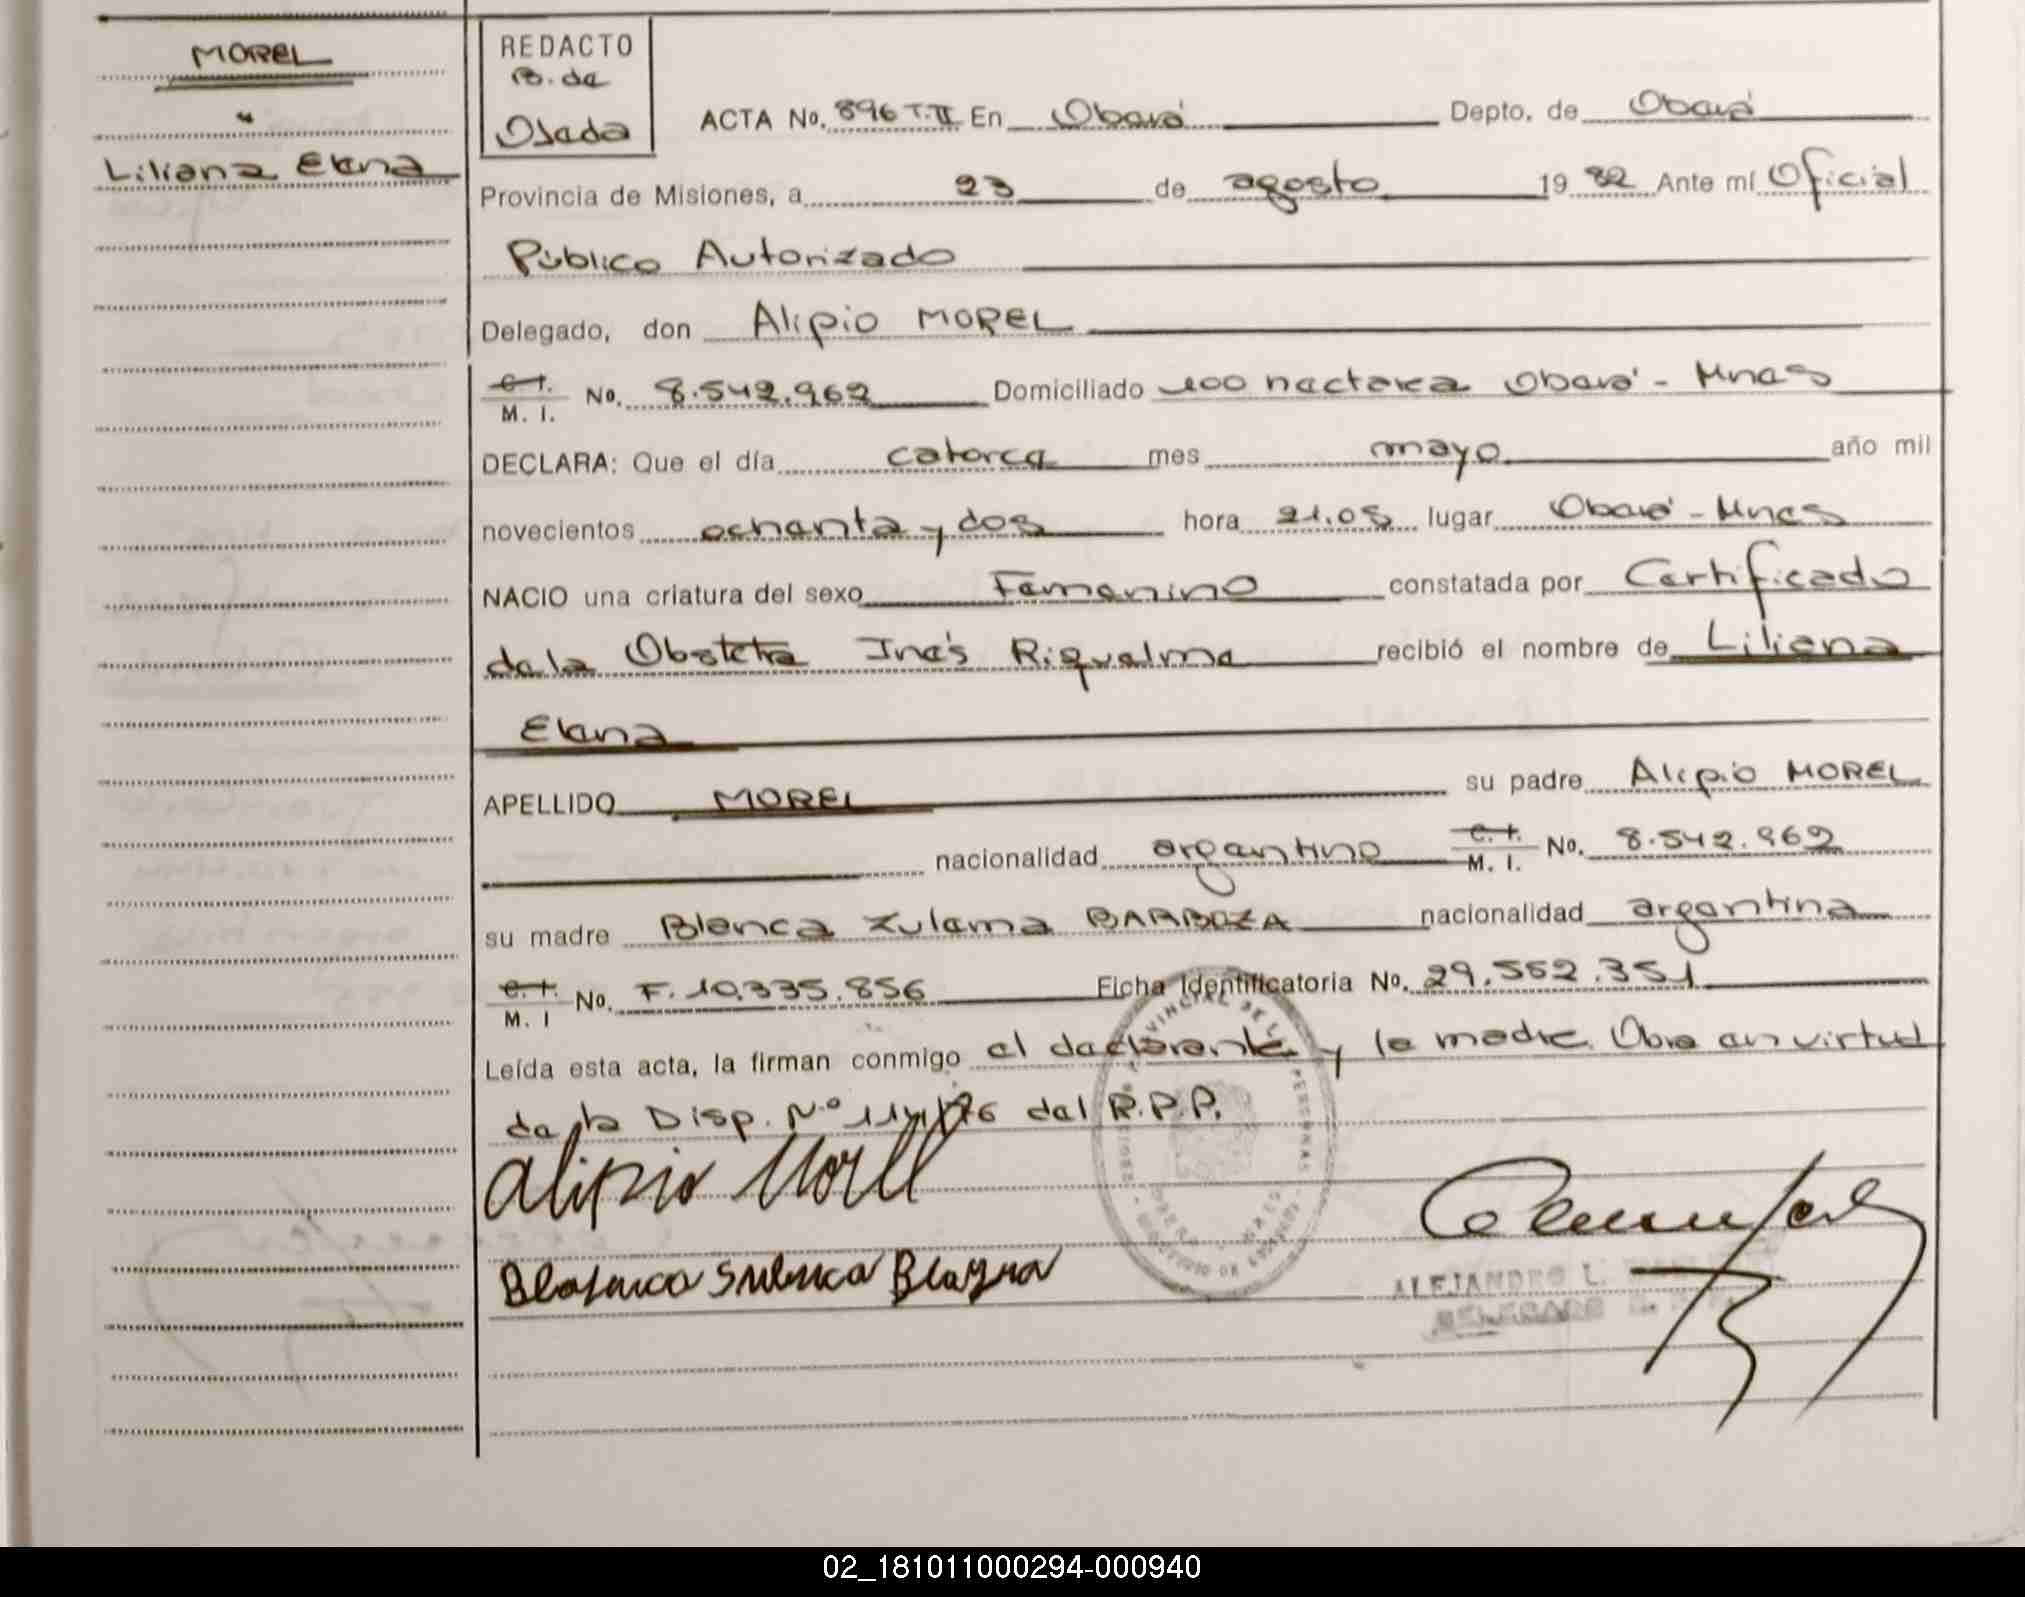 MOREL
"
Liliana Elena
REDACTO
B. de
Osada
ACTA No. 896 T.II En Oberá Depto. de Oberá
Provincia de Misiones, a 23 de agosto 19 82 Ante mí Oficial
Público Autorizado
Delegado, don Alipio MOREL
C. I. M. I. No. 8.542.962 Domiciliado 100 hectárea Oberá - Mnes
DECLARA: Que el día catorce mes mayo año mil
novecientos ochenta y dos hora 21.05 lugar Oberá - Mnes
NACIO una criatura del sexo Femenino constatada por Certificado
de la Obstetra Inés Riquelme recibió el nombre de Liliana
Elena
APELLIDO MOREL su padre Alipio MOREL
nacionalidad argentino C. I. M. I. No. 8.542.962
su madre Blanca Zulema BARBOZA nacionalidad argentina
C. I. M. I No. F. 10.335.856 Ficha Identificatoria No. 29.552.351
Leída esta acta, la firman conmigo el declarante y la madre. Obra en virtud
de la Disp. N.º /76 del R.P.P.
Alipio Morel
ALEJANDRO L.
02_181011000294-000940